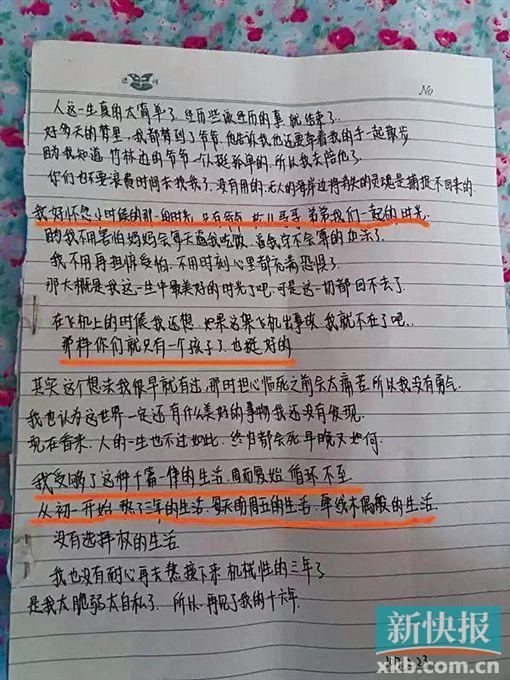 No
人这一生真的太简单了 经历些该经历的事 就结束了..
好多天的梦里.我都梦到了爷爷.他告诉我他还要牵着我的手一起散步
因为我知道 竹林边的爷爷一个人挺孤单的.所以我去陪他了.
你们也不要浪费时间去找我了.没有用的.无人的海岸边将消失的灵魂是捕捉不回来的.
我好怀念小时候的那一段时光.只有爷爷 女儿 哥哥 弟弟我们一起的时光
的我不用害怕妈妈会每天逼我吃饭 逼我学不会算的加法了.
我不用再担惊受怕.不用时刻心里都充满恐惧了.
那大概是我这一生中最美好的时光了吧.可是这一切都回不去了.
在飞机上的时候我还想.如果这架飞机出事故.我就不在了吧..
那样你们就只有一个孩子了.也挺好的
其实这个想法我很早就有过.那时担心临死之前会太痛苦所以我没有勇气
我也认为这世界一定还有什么美好的事物我还没有发现.
现在看来.人的一生也不过如此.终归都会死.早晚又如何.
我受够了这种千篇一律的生活.周而复始 循环不至
从初一开始 熬了三年的生活.每天的周五的生活.牵线木偶般的生活
没有选择权的生活
我也没有耐心再去想接下来机械性的三年了
是我太脆弱太自私了.所以.再见了我的十六年.
23
新快报
xkb.com.cn